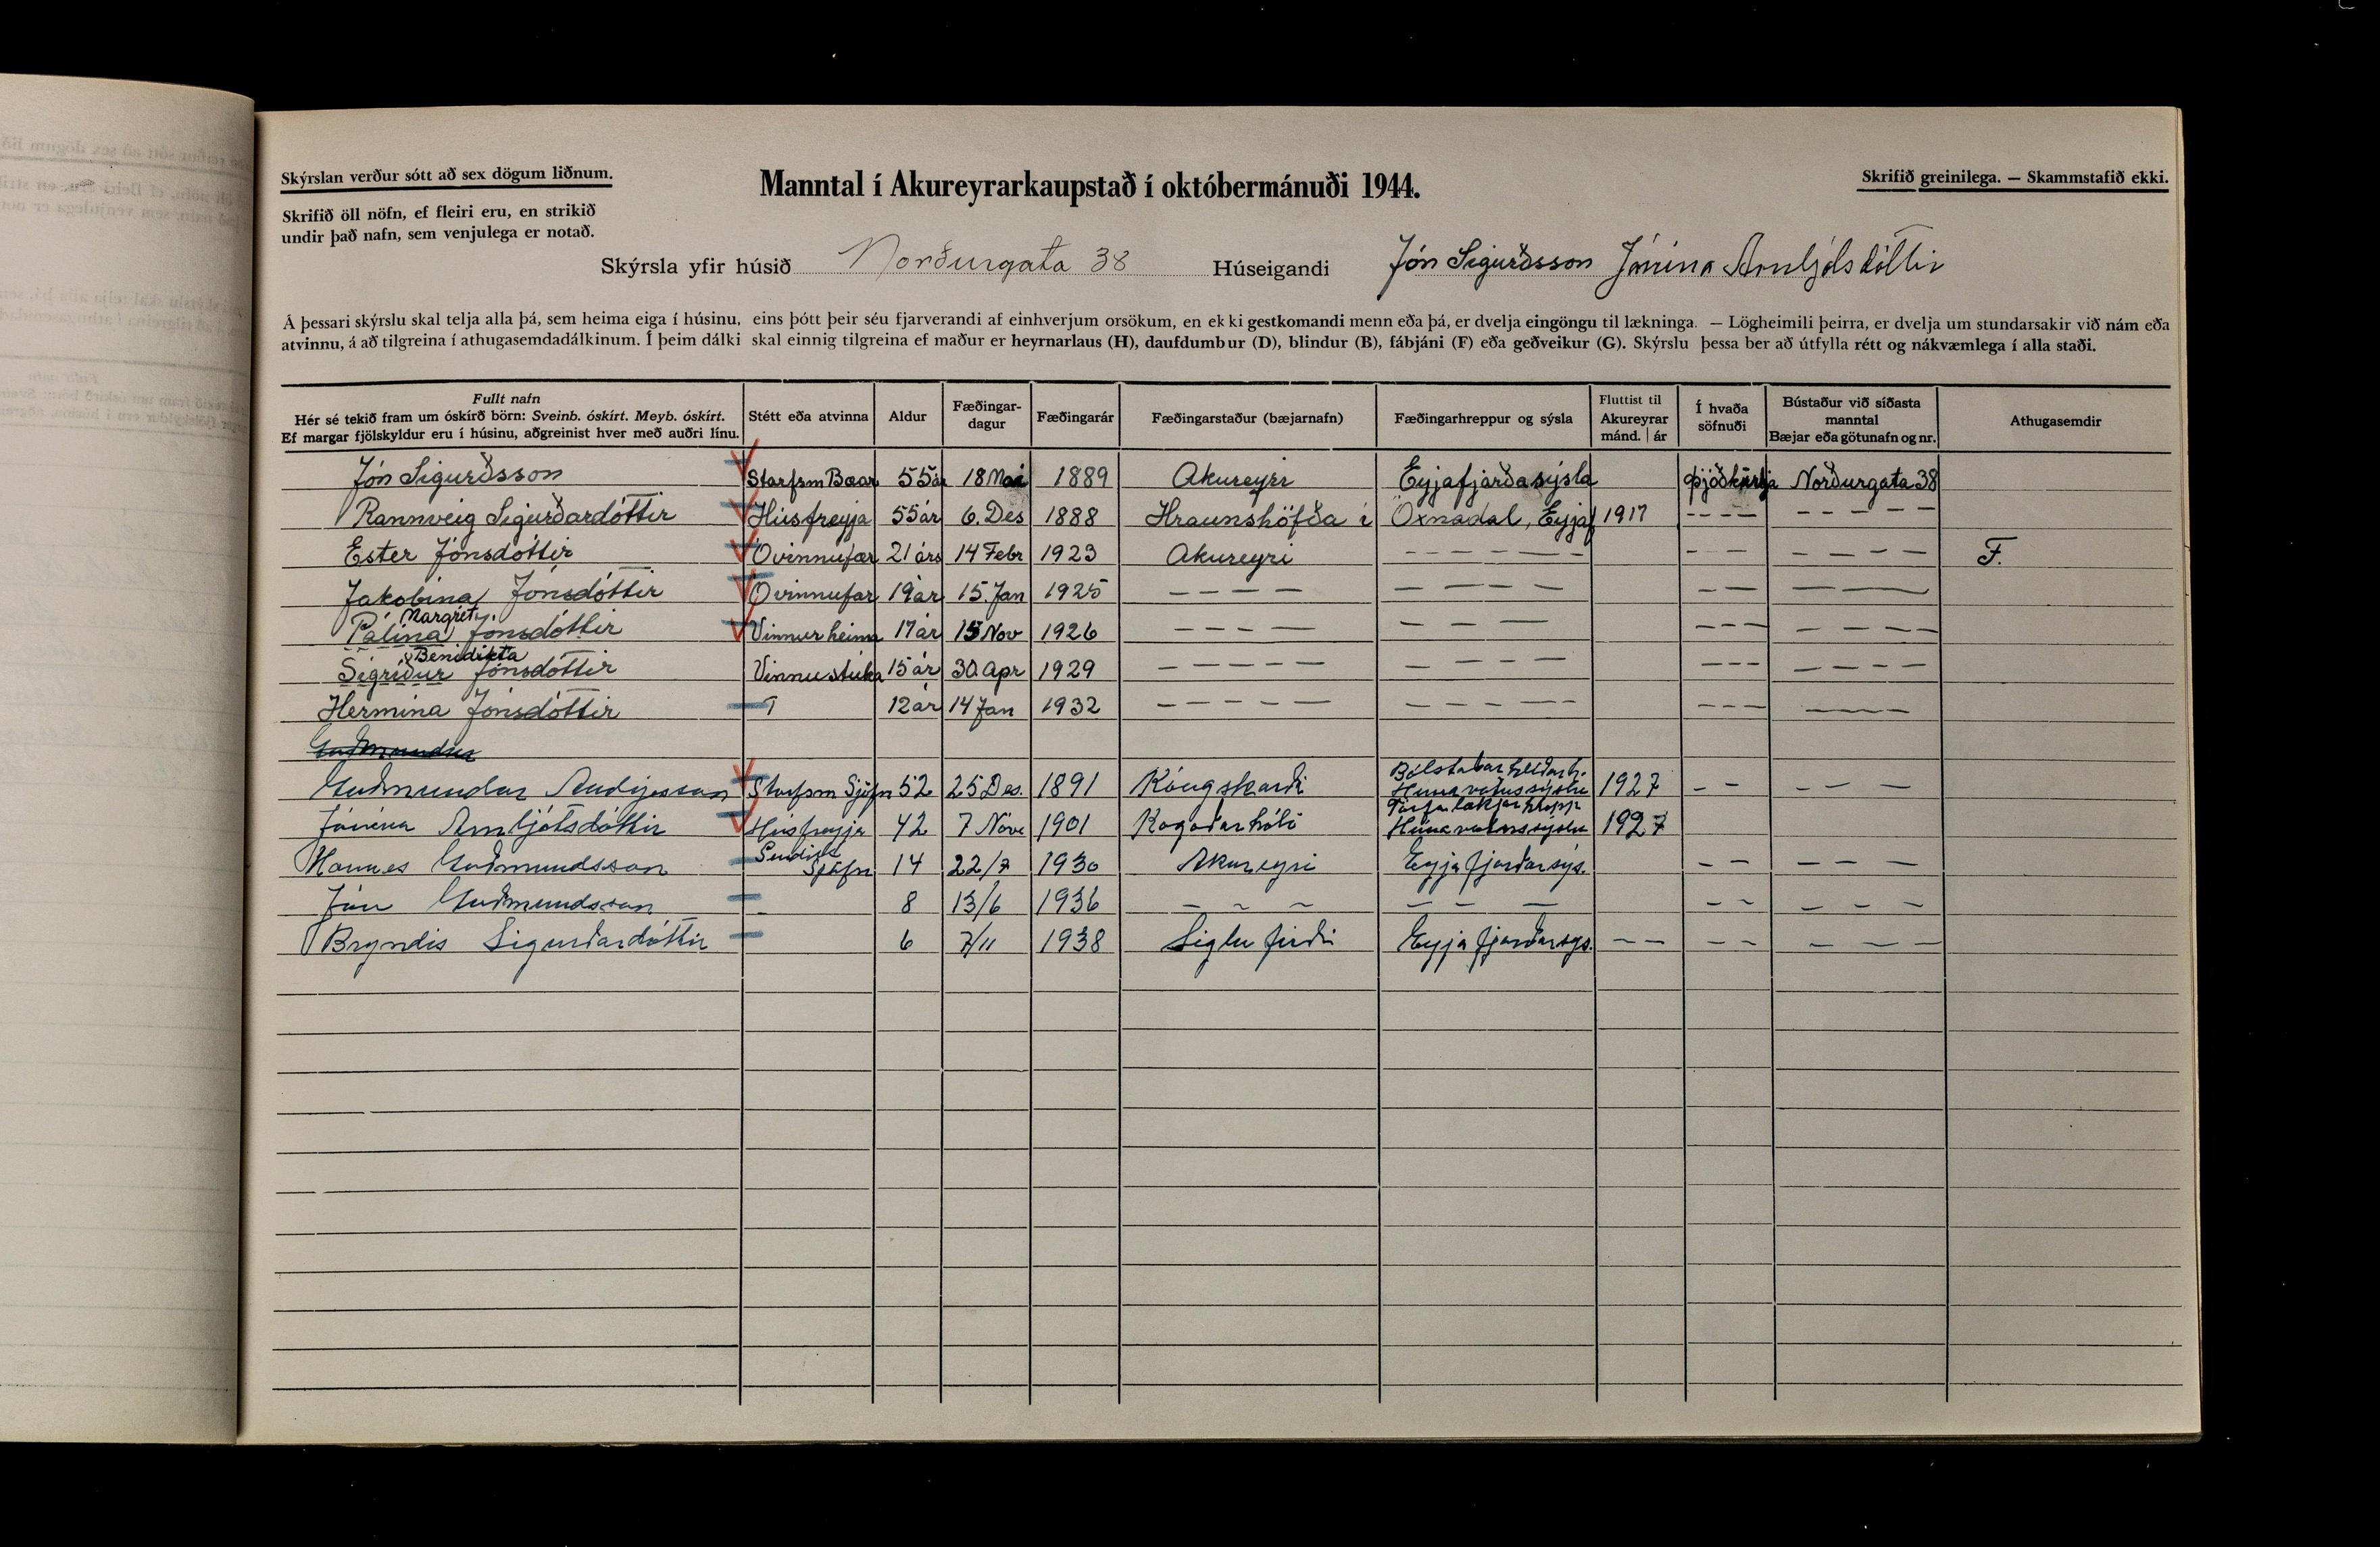 Skýrslan verður sótt að sex dögum liðnum.
Manntal í Akureyrarkaupstað í októbermánuði 1944.
Skrifið greinilega. — Skammstafið ekki.
Skrifið öll nöfn, ef fleiri eru, en strikið
undir það nafn, sem venjulega er notað.
Skýrsla yfir húsið Norðurgata 38 Húseigandi Jón Sigurðsson Jónína Arnljótsdóttir
Á þessari skýrslu skal telja alla þá, sem heima eiga í húsinu, eins þótt þeir séu fjarverandi af einhverjum orsökum, en ekki gestkomandi menn eða þá, er dvelja eingöngu til lækninga. — Lögheimili þeirra, er dvelja um stundarsakir við nám eða
atvinnu, á að tilgreina í athugasemdadálkinum. Í þeim dálki skal einnig tilgreina ef maður er heyrnarlaus (H), daufdumbur (D), blindur (B), fábjáni (F) eða geðveikur (G). Skýrslu þessa ber að útfylla rétt og nákvæmlega í alla staði.
Fullt nafn
Hér sé tekið fram um óskírð börn: Sveinb. óskírt. Meyb. óskírt.
Ef margar fjölskyldur eru í húsinu, aðgreinist hver með auðri línu.
Stétt eða atvinna
Aldur
Fæðingar-
dagur
Fæðingarár
Fæðingarstaður (bæjarnafn)
Fæðingarhreppur og sýsla
Fluttist til
Akureyrar
mánd. | ár
Í hvaða
söfnuði
Bústaður við síðasta
manntal
Bæjar eða götunafn og nr.
Athugasemdir
Jón Sigurðsson Starfsm Bæar 55ár 18 Mai 1889 Akureyri Eyjafjarðasýsla Þjóðkirkja Norðurgata 38
Rannveig Sigurðardóttir Húsfreyja 55ár 6. Des 1888 Hraunshöfða í Öxnadal, Eyjaf 1917 - - - - - - - - -
Ester Jónsdóttir Óvinnufær 21 árs 14 Febr 1923 Akureyri - - - - - - - - - - - - F.
Jakobína Jónsdóttir Óvinnufær 19ár 15. Jan 1925 - - - - - - - - - - - - -
Margrét
Pálína Jónsdóttir Vinnur heima 17ár 15 Nov 1926 - - - - - - - - - - - - - -
Benidikta
Sigríður Jónsdóttir Vinnustúlka 15ár 30. Apr 1929 - - - - - - - - - - - - - - - -
Hermína Jónsdóttir 12ár 14 Jan 1932 - - - - - - - - - - - - - - - -
Guðmundur
Bólstaðarhlíðarh.
Guðmundur Starfsm Sjöfn 52 25 Des. 1891 Húnavatnssýslu 1927 - - - - -
Torfalækjarhrepp
Jónína Arnljótsdóttir Húsfreyja 42 7 Nóve 1901 Húnavatnssýslu 1927
Sendill
Hannes Guðmundsson Sjöfn 14 22/7 1930 Akureyri Eyjafjarðarsýs. - - - - -
Jón Guðmundsson - 8 13/6 1936 - - - - - - - - - - -
Bryndís Sigurðardóttir 6 7/11 1938 Siglufirði Eyjafjarðarsýs. - - - - - - -